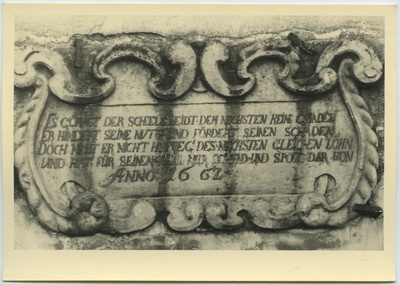 ES GÖNET DER SCHEELE NEIDT DEM NECHSTEN KEINE GNADEN
ER HINDERT SEINE NUTZ UND FÖRDERT SEINEN SCHADEN
DOCH NIMT ER NICHT HINWEG DES NECHSTEN GLEICHEN LOHN
UND HAT FÜR SEINEN NUR SCHAND UND SPOT DAR VON
ANNO 1662